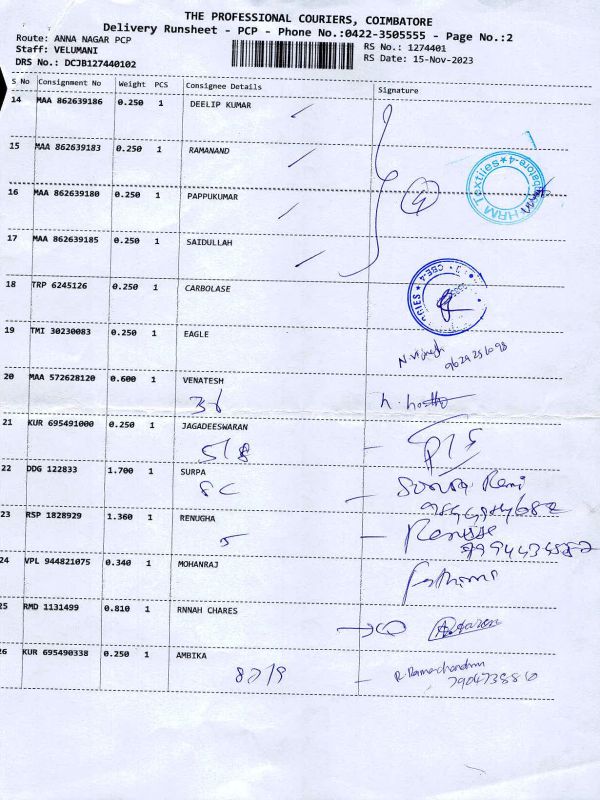 THE PROFESSIONAL COURIERS, COIMBATORE
Delivery Runsheet - PCP - Phone No.:0422-3505555 - Page No.:2
Route: ANNA NAGAR PCP
RS No.: 1274401
Staff: VELUMANI
RS Date: 15-Nov-2023
DRS No.: DCJB127440102
S No Consignment No Weight PCS Consignee Details Signature
14 MAA 862639186 0.250 1 DEELIP KUMAR
15 MAA 862639183 0.250 1 RAMANAND
HRM Textiles
16 MAA 862639180 0.250 1 PAPPUKUMAR
4
17 MAA 862639185 0.250 1 SAIDULLAH
18 TRP 6245126 0.250 1 CARBOLASE
CBE-4
19 TMI 30230083 0.250 1 EAGLE
20 MAA 572628120 0.600 1 VENATESH
36
21 KUR 695491000 0.250 1 JAGADEESWARAN
5/8
22 DDG 122833 1.700 1 SURPA
8C
23 RSP 1828929 1.360 1 RENUGHA
5
24 VPL 944821075 0.340 1 MOHANRAJ
25 RMD 1131499 0.810 1 RNNAH CHARES
26 KUR 695490338 0.250 1 AMBIKA
R. Ramachandran